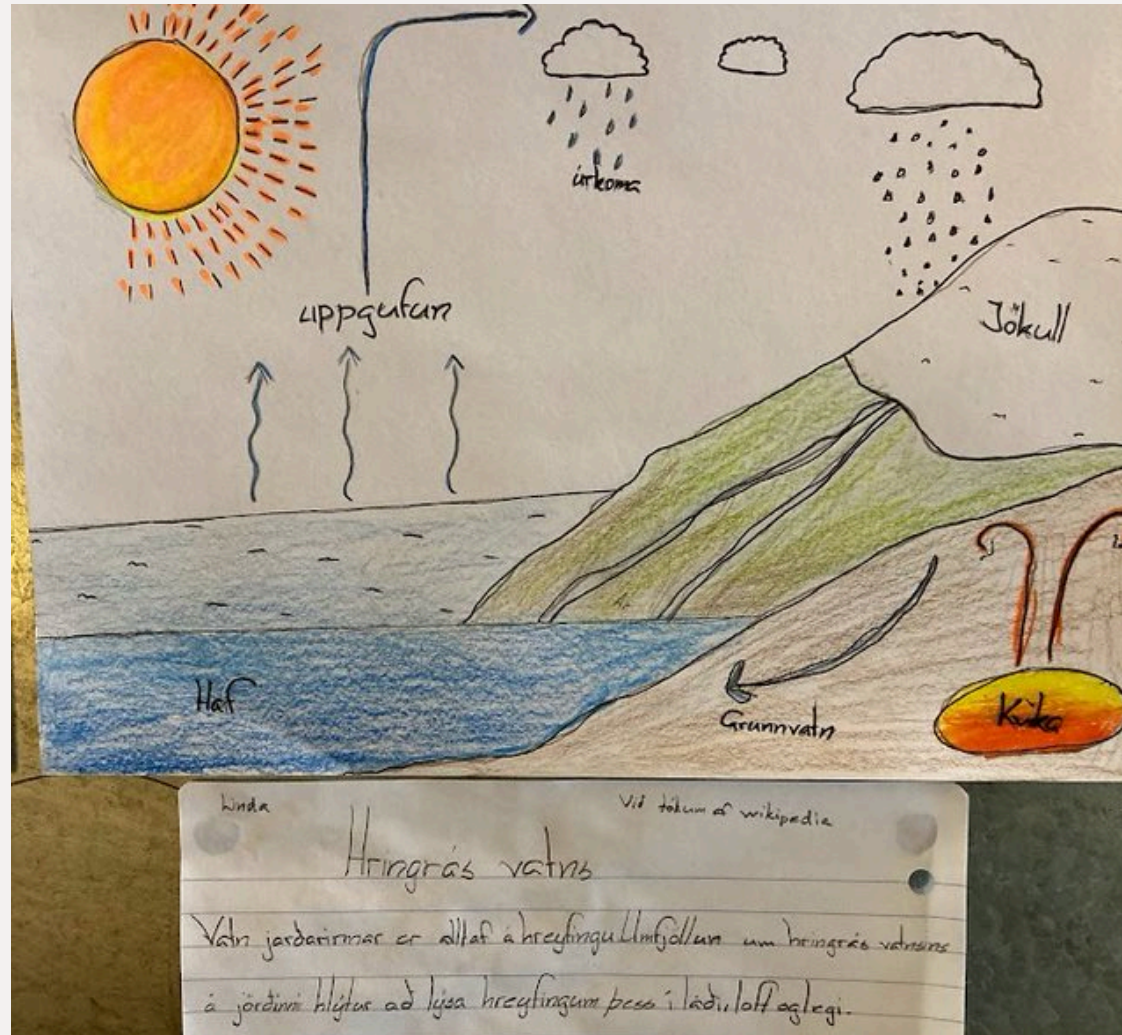 úrkoma
uppgufun
Jökull
Haf
Grunnvatn
Kvika
Linda
Við tókum af wikipedia
Hringrás vatns
Vatn jarðarinnar er alltaf á hreyfingu Umfjöllun um hringrás vatnsins
á jörðinni hlýtur að lýsa hreyfingum þess í láði, loft og legi.